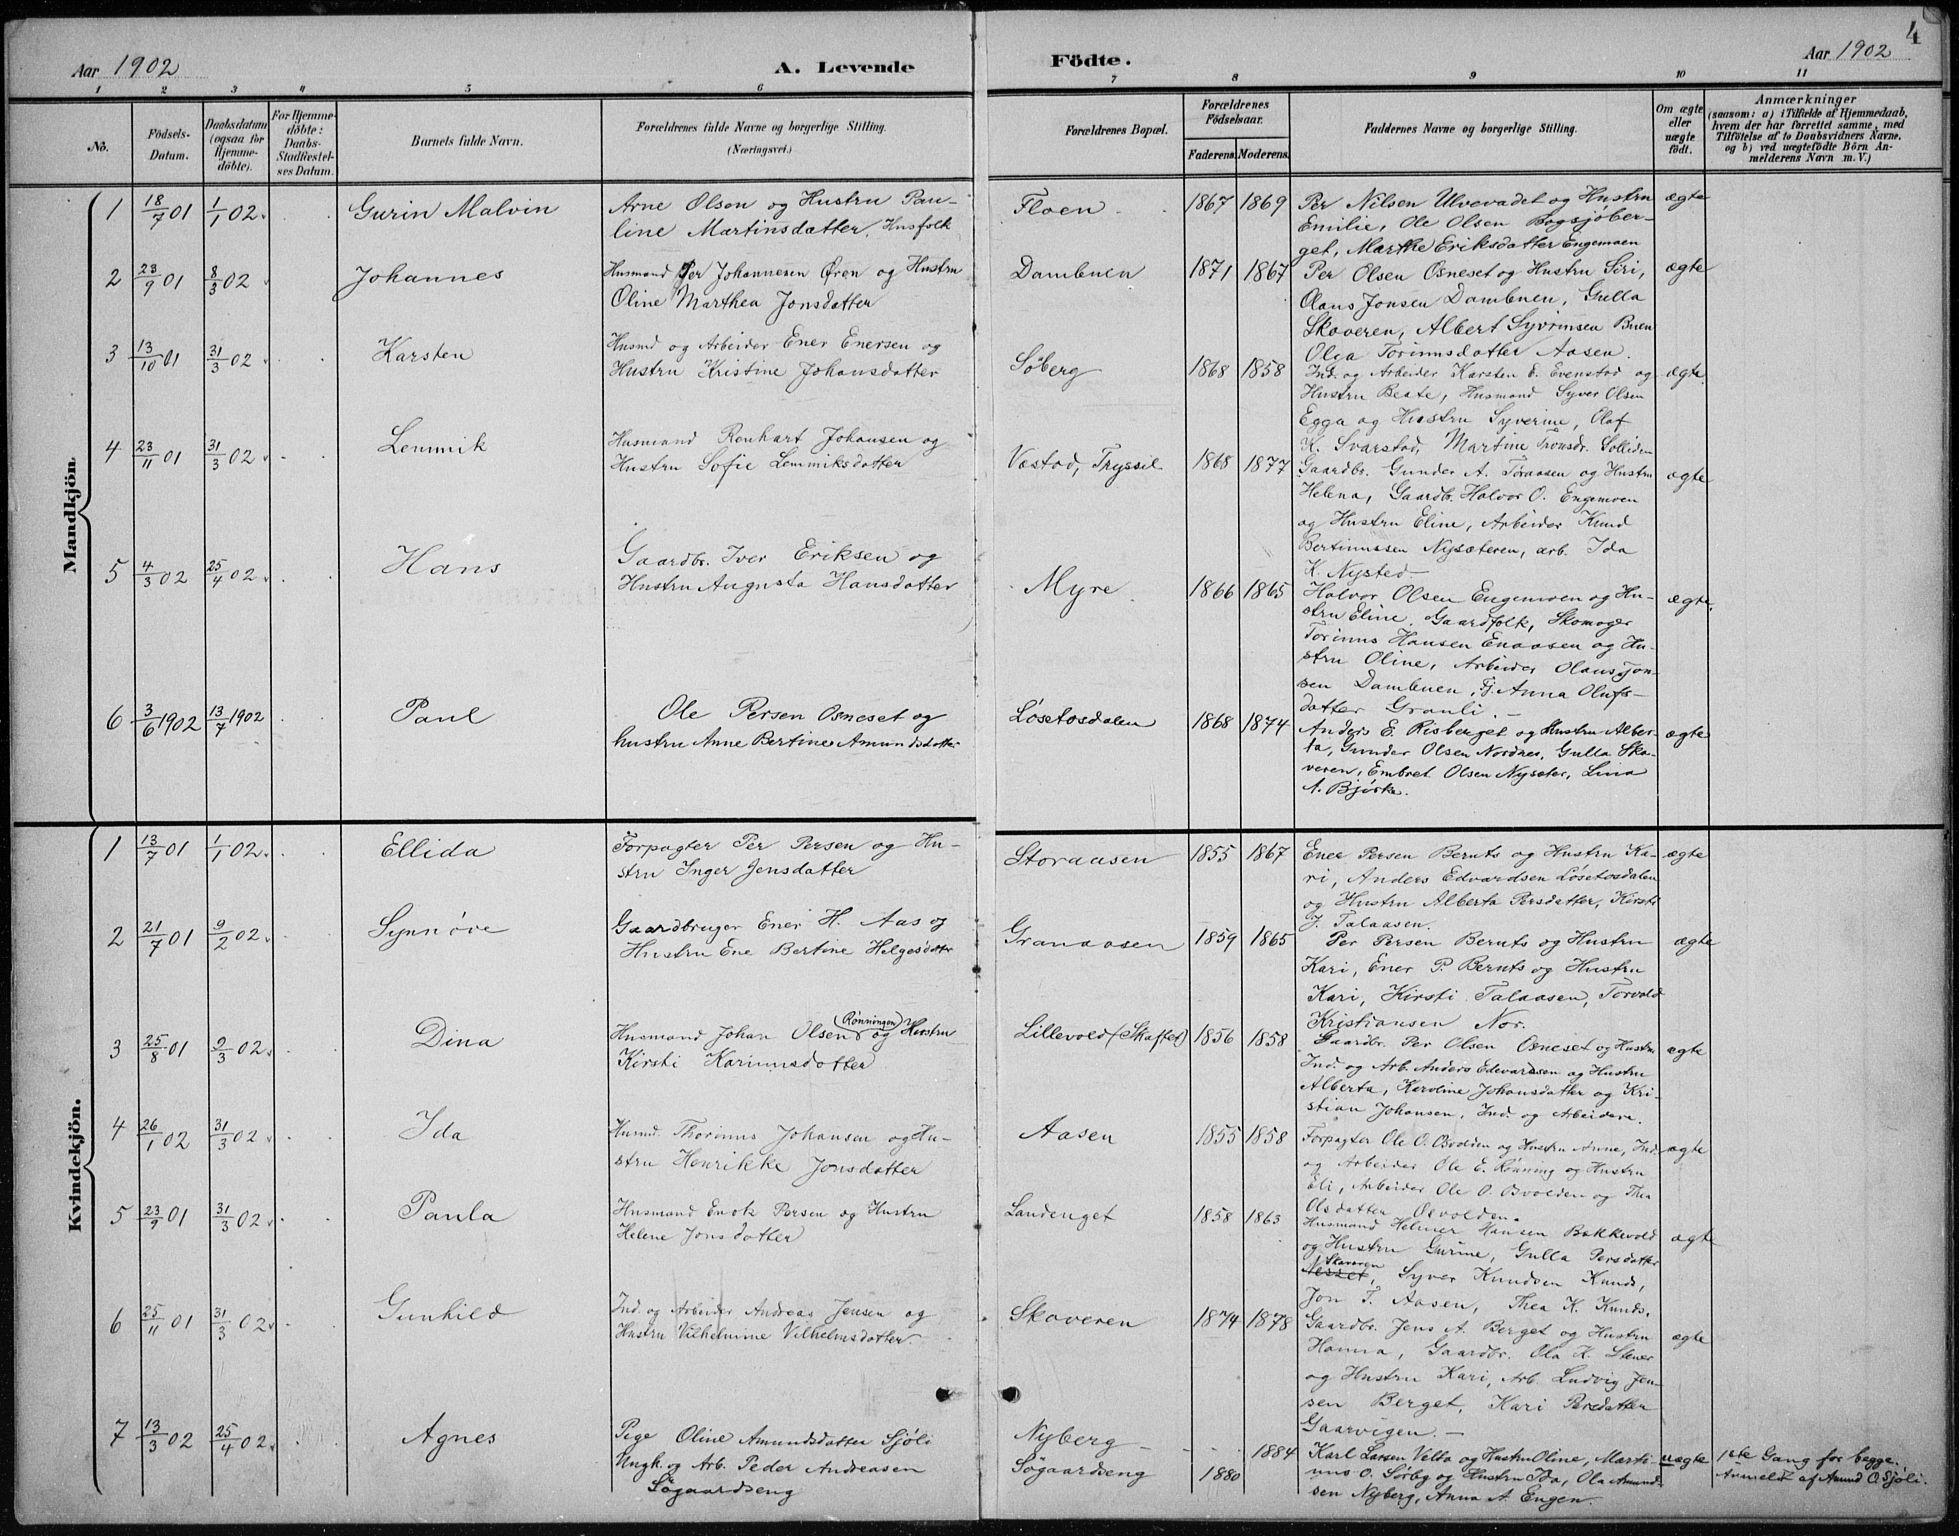 4
Aar 1902
A. Levende
Födte.
Aar 1902
1 2 3 4 5 6 7 8 9 10 11
No.
Födsels-
Datum.
Daabsdatum
(ogsaa for
Hjemme-
døbte).
For Hjemme-
døbte:
Daabs-
Stadfæstel-
ses Datum.
Barnets fulde Navn.
Forældrenes fulde Navne og borgerlige Stilling.
(Næringsvei.)
Forældrenes Bopæl.
Forældrenes
Födselsaar.
Faderens. Moderens.
Faddernes Navne og borgerlige Stilling.
Om ægte
eller
uægte
födt.
Anmærkninger
(saasom: a) i Tilfælde af Hjemmedaab,
hvem der har forrettet samme, med
Tilföielse af to Daabsvidners Navne.
og b) ved uægtefödte Börn An-
melderens Navn m. V.)
Mandkjön.
1 18/7 01 1/1 02 Gurin Malvin
Arne Olsen og Hustru Pau-
line Martinsdatter, Husfolk
Floen 1867 1869
Per Nilsen Ulvevadet og Hustru
Emilie, Ole Olsen Bogsjøber-
get, Marthe Eriksdatter Engemoen
ægte
2 23/9 01 8/3 02 Johannes
Husmand Per Johannesen Øren og Hustru
Oline Marthea Jonsdatter
Dambuen 1871 1867
Per Olsen Osneset og Hustru Siri,
Olaus Jonsen Dambuen, Gulla
Skoveren, Albert Syvrinsen Buen
Olga Torinusdatter Aasen.
ægte
3 13/10 01 31/3 02 Karsten
Husmd og Arbeider Ener Enersen og
Hustru Kristine Johansdatter
Søberg 1868 1858
Ind. og Arbeider Karsten E. Evenstad og
Hustru Beate, Husmand Syver Olsen
Egga og Hustru Syverine, Olaf
K. Svarstad, Martine Tronsdr. Solliden
ægte
4 23/11 01 31/3 02 Lemmik
Husmand Renhart Johansen og
Hustru Sofie Lemmiksdatter
Vestad, Tryssil 1868 1877
Gaardbr. Gunder A. Toraasen og Hustru
Helena, Gaardb. Halvor O. Engemoen
og Hustru Eline, Arbeider Knud
Bertinussen Nysæteren, arb. Ida
K. Nysted
ægte
5 4/3 02 25/4 02 Hans
Gaardbr. Iver Eriksen og
Hustru Augusta Hansdatter
Myre 1866 1865
Halvor Olsen Engemoen og Hu-
stru Eline, Gaardfolk, Skomager
Torinus Hansen Enaasen og Hu-
stru Oline, Arbeider Olaus Jon-
sen Dambuen, Fj. Anna Olufs-
datter Granli.
ægte
6 3/6 1902 13/7 1902 Paul
Ole Persen Osneset og
hustru Anne Bertine Amundsdatter
Løsetosdalen 1868 1874
Anders E. Risberget og Hustru Alber-
ta, Gunder Olsen Nordnes, Gulla Sko-
veren, Embret Olsen Nysæter, Lina
A. Bjørke.
ægte
Kvindekjön.
1 13/7 01 1/1 02 Ellida
Forpagter Per Persen og Hu-
stru Inger Jensdatter
Storaasen 1855 1867
Ener Persen Bernts og Hustru Ka-
ri, Anders Edvardsen Løsetosdalen
og Hustru Alberta Persdatter, Kirsti
J. Talaasen.
ægte
2 21/7 01 9/2 02 Synnøve
Gaardbruger Ener H. Aas og
Hustru Ene Bertine Helgesdatter
Granaasen 1859 1865
Per Persen Bernts og Hustru
Kari, Ener P. Bernts og Hustru
Kari, Kirsti Talaasen, Torvald
Kristiansen Nor.
ægte
3 25/8 01 9/3 02 Dina
Husmand Johan Olsen (Rønningen) og Hustru
Kirsti Karinusdatter
Lillevold (Skaftet) 1856 1858
Gaardbr. Per Olsen Osneset og Hustru
Ind. og Arb. Anders Edevardsen og Hustru
Alberta, Karoline Johansdatter og Kri-
stian Johansen, Ind. og Arbeidere.
ægte
4 26/1 02 31/3 02 Ida
Husmd. Thorinus Johansen og Hu-
stru Henrikke Jonsdatter
Aasen 1855 1858
Forpagter Ole O. Bvolden og Hustru Anne, Ind.
og Arbeider Ole E. Rønning og Hustru
Eli, Arbeider Ole O. Bvolden og Thea
Olsdatter Osvolden.
ægte
5 23/9 01 31/3 02 Paula
Husmand Enok Persen og Hustru
Helene Jonsdatter
Landenget 1858 1863
Husmand Helmer Hansen Bakkevold
og Hustru Gurine, Gulla Persdatter
Skoveren, Syver Knudsen Knuds,
Jon T. Aasen, Thea K. Knuds.
ægte
6 25/11 01 31/3 02 Gunhild
Ind. og Arbeider Andreas Jensen og
Hustru Vilhelmine Vilhelmsdatter
Skoveren 1874 1878
Gaardbr. Jens A. Berget og Hustru
Hanna, Gaardbr. Ola K. Stener
og Hustru Kari, Arb. Ludvig Jen-
sen Berget, Kari Persdatter
Gaarvigen.
ægte
7 13/3 02 25/4 02 Agnes
Pige Oline Amundsdatter Sjøli
Ungk. og Arb. Peder Andreasen
Søgaardseng
Nyberg 1884
Søgaardseng 1880
Karl Larsen Velta og Hustru Oline, Marti-
nus O. Sörby og Hustru Ida, Ola Amund-
sen Nyberg, Anna A. Engen.
uægte
1ste Gang for begge.
Anmeldt af Amund O. Sjøli.